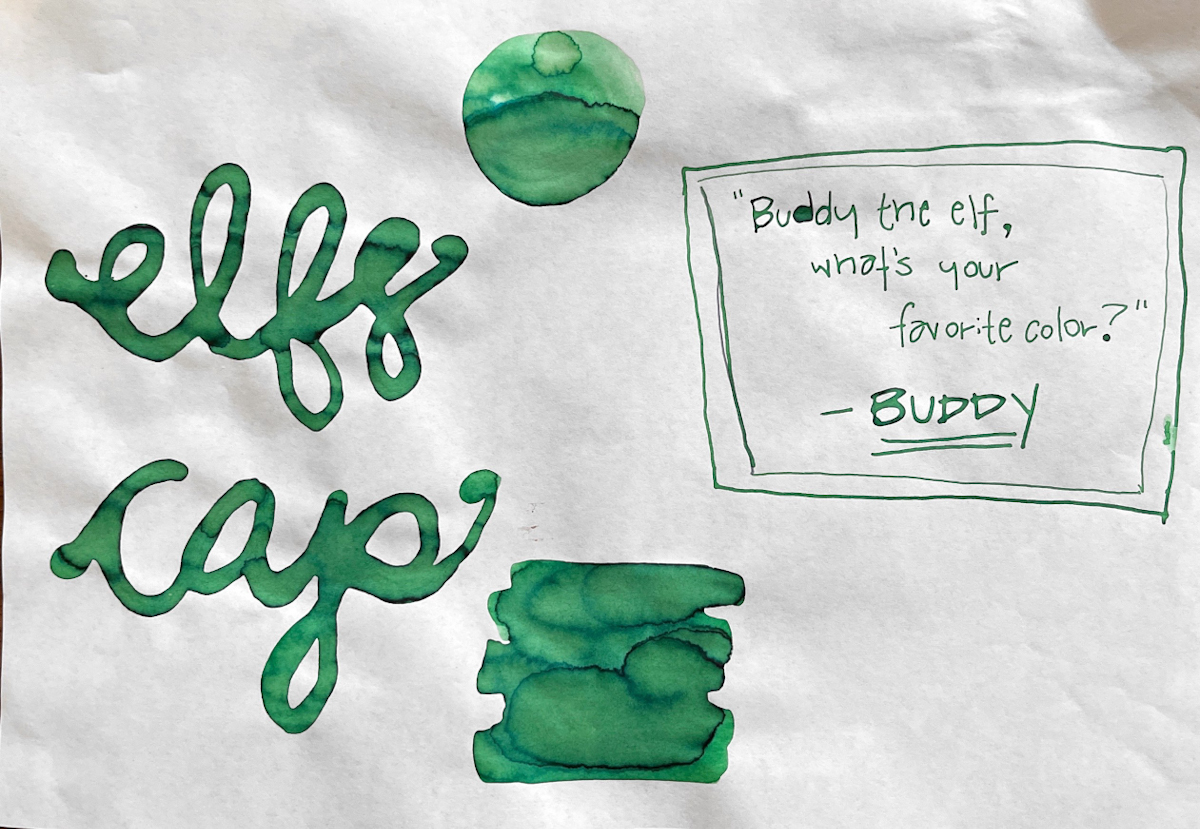 elfs
cap
"Buddy the elf,
what's your
favorite color?"
- BUDDY